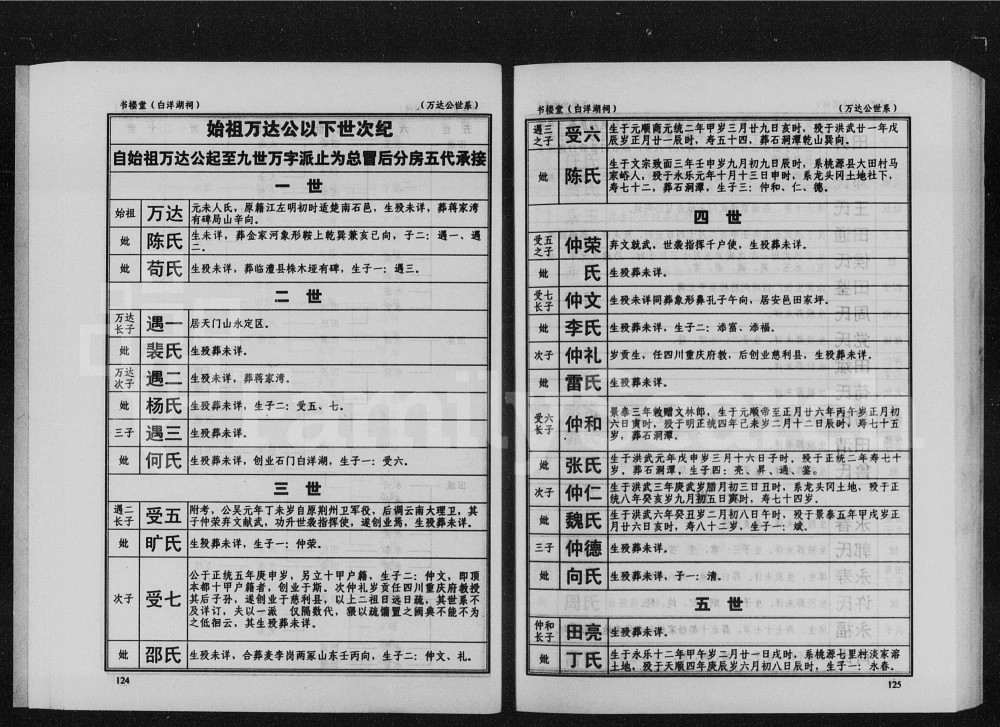 书楼堂（白洋湖祠）
（万达公世系）
始祖万达公以下世次纪
自始祖万达公起至九世万字派止为总冒后分房五代承接
一 世
始祖 万达 元未人氏，原籍江左明初时适楚南石邑，生殁葬未详，葬蒋家湾
有碑局山辛向。
妣 陈氏 生未详，葬金家河象形鞍上乾巽兼亥己向，子二：遇一、遇
二．
妣 苟氏 生殁未详，葬临澧县株木垭有碑，生子一：遇三。
二 世
万达
长子 遇一 居天门山永定区。
妣 裴氏 生殁葬未详。
万达
次子 遇二 生殁未详，葬蒋家湾。
妣 杨氏 生殁葬未详，生子二：受五、七。
三子 遇三 生殁葬未详。
妣 何氏 生殁葬未详，创业石门白洋湖，生子一：受六。
三 世
遇二
长子 受五 附考，公吴元年丁未岁自原荆州卫军役，后调云南大理卫，其
子仲荣弃文献武，功升世袭指挥使，遂创业焉，生殁葬未详。
妣 旷氏 生殁葬未详，生子一：仲荣。
次子 受七 公于正统五年庚申岁，另立十甲户籍，生子二：仲文，即顶
本都十甲户籍者，创业于斯。次仲礼岁贡任四川重庆府教授
其后子孙，遂创业于慈利县，以上二祖日远日疏，其世系不
及详订，夫以一派　仅隔数代，猥以疏慵置之阙典不能不为
之低徊云，其生殁葬未详。
妣 邵氏 生殁未详，合葬麦李岗两冢山东壬丙向，生子二：仲文、礼。
124
书楼堂（白洋湖祠）
（万达公世系）
遇三
之子 受六 生于元顺商元统二年甲岁三月廿九日亥时，殁于洪武廿一年戊
辰岁正月廿一辰时，寿五十四，葬石涧潭乾山巽向。
妣 陈氏 生于文宗致面三年壬申岁九月初九日辰时，系桃源县大田村马
家峪人，殁于永乐元年十月十三日申时，系龙头冈土地社下，
寿七十二，葬石涧潭，生子三：仲和、仁、德。
四 世
受五
之子 仲荣 弃文就武，世袭指挥千户使，生殁葬未详。
妣 氏 生殁葬未详。
受七
长子 仲文 生殁未详同葬象形鼻孔子午向，居安邑田家坪。
妣 李氏 生殁葬未详，生子二：添富、添福。
次子 仲礼 岁贡生，任四川重庆府教，后创业慈利县，生殁葬未详。
妣 雷氏 生殁葬未详。
受六
长子 仲和 景泰三年敕赠文林郎，生于元顺帝至正月廿六年丙午岁正月初
六日寅时，殁于明正统四年己未岁二月十二日辰时，寿七十五
岁，葬石涧潭。
妣 张氏 生于洪武元年戊申岁三月十六日子时，殁于正统二年寿七十
岁。葬石涧潭，生子四：亮、昇、通、鉴。
次子 仲仁 生于洪武三年庚武岁腊月初三日丑时，系龙头冈土地，殁于正
统八年癸亥岁九月初五日寅时，寿七十四岁。
妣 魏氏 生于洪武六年癸丑岁二月初八日午时，殁于景泰五年甲戌岁正
月廿六日亥时，寿八十二岁，生子一：斌。
三子 仲德 生殁葬未详。
妣 向氏 生殁葬未详，子一：清。
五 世
仲和
长子 田亮 生殁葬未详。
妣 丁氏 生于永乐十二年甲午岁二月廿一日戌时，系桃源七里村淡家溶
土地，殁于天顺四年庚辰岁六月初八日辰时，生子一：永春。
125